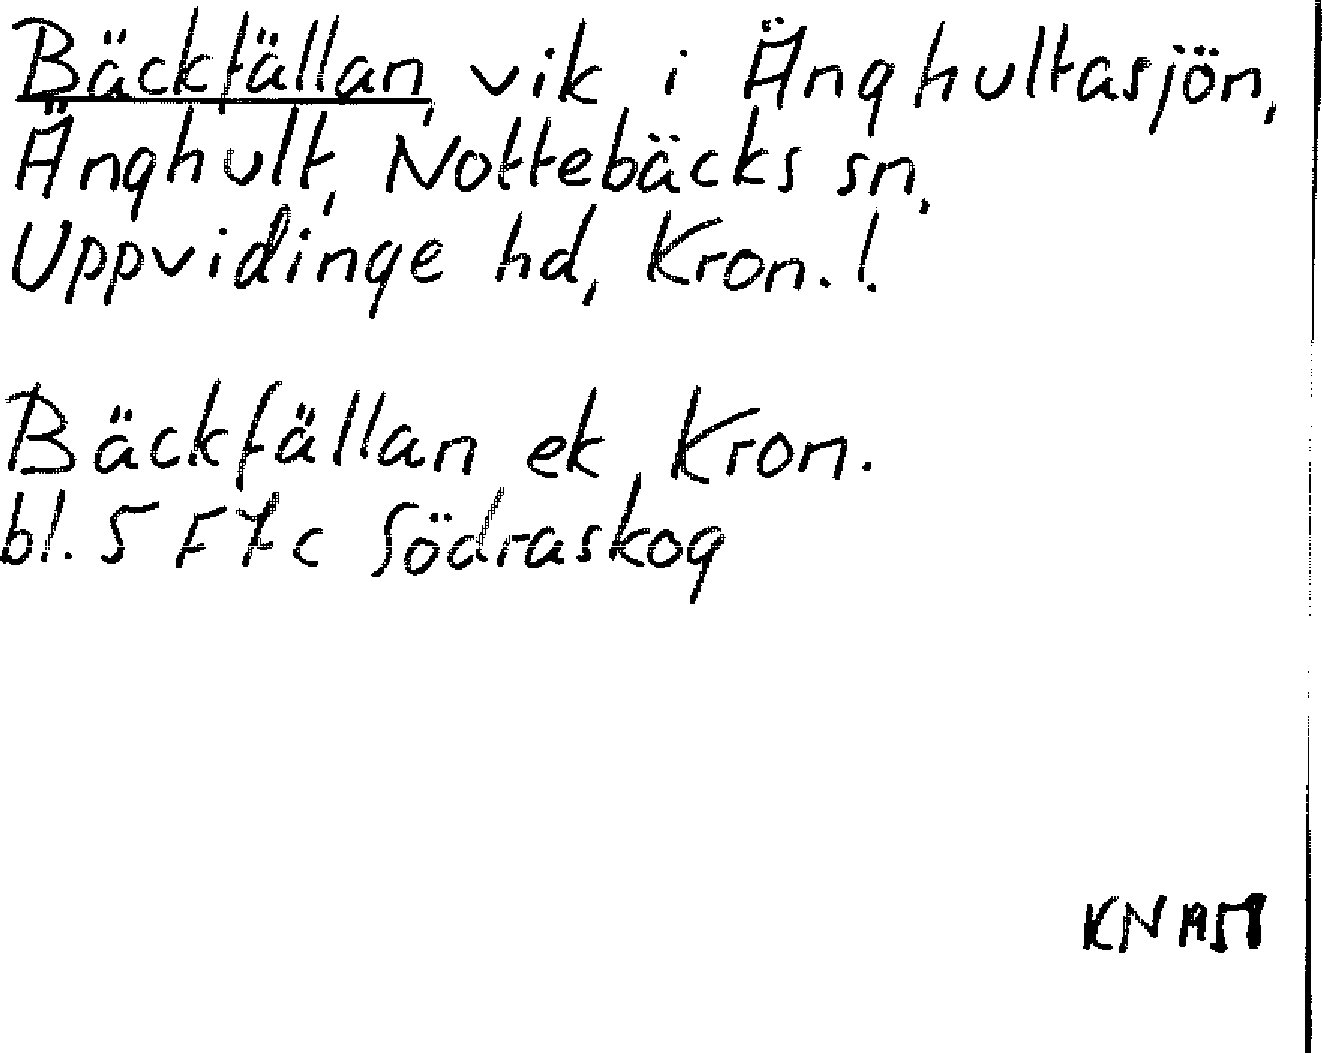 Bäckfällan, vik i Änghultasjön,
Änghult, Nottebäcks sn,
Uppvidinge hd, Kron. l.
Bäckfällan ek, Kron.
bl. 5 F 7 c Södraskog